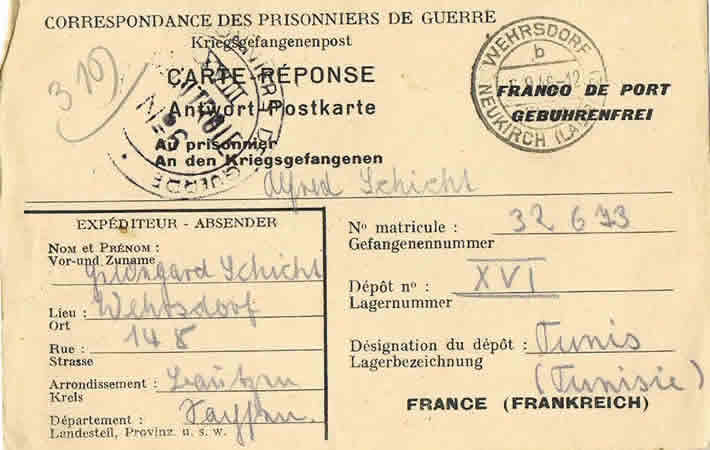 CORRESPONDANCE DES PRISONNIERS DE GUERRE
Kriegsgefangenenpost
CARTE-RÉPONSE
Antwort-Postkarte
FRANCO DE PORT
GEBUHRENFREI
WEHRSDORF
b
NEUKIRCH (LA
310
GUERRE
Au prisonnier
An den Kriegsgefangenen
Alfred Schicht
EXPÉDITEUR - ABSENDER
Nom et Prénom :
Vor-und Zuname
Hildegard Schicht
Lieu : Wehrsdorf
Ort
Rue : 148
Strasse
Arrondissement : Bautzen
Kreis
Département : Sachsen.
Landesteil, Provinz. u. s. w.
No matricule : 32 673
Gefangenennummer
Dépôt no : XVI
Lagernummer
Désignation du dépôt : Tunis
Lagerbezeichnung (Tunisie)
FRANCE (FRANKREICH)